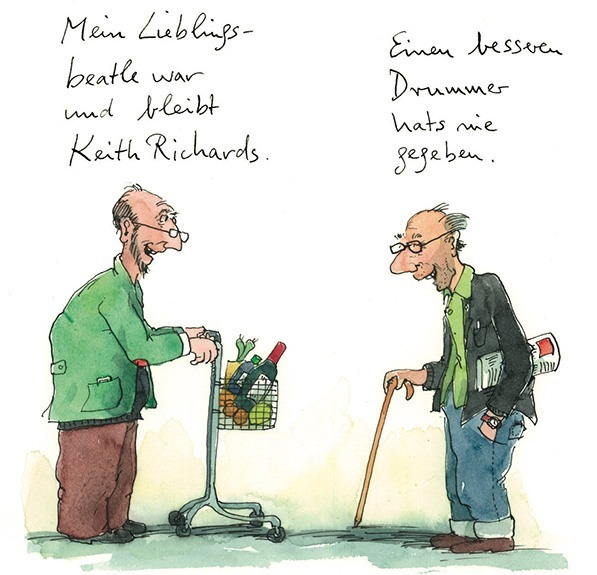 Mein Lieblings-
beatle war
und bleibt
Keith Richards.
Einen besseren
Drummer
hats nie
gegeben.